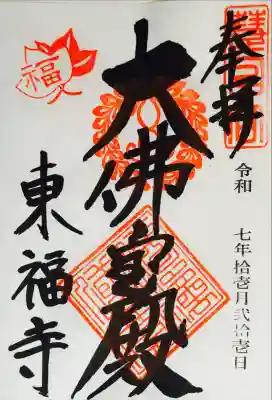 奉拝
令和 七年拾壱月弐拾壱日
大佛宝殿
福
東福寺